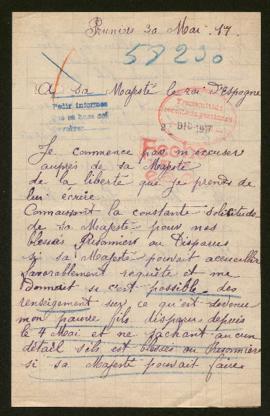 Pruniers 30 Mai 17.
58230
A Sa Majesté le roi d'Espagne
Pedir informes
2 DIC 1917
Je commence par m'excuser
auprès de sa Majesté
de la liberté que je prends de
lui écrire
Connaissant la constante Solicitude
de sa Majesté pour nos
blessés Prisonniers ou Disparus
si sa Majesté pouvait accueillir
favorablement requête et me
Donnait si c'est possible des
renseignement sur ce qu'est devenue
mon pauvre fils disparus depuis
le 4 Mai et ne sachant aucun
détail s'ils est blessés ou Prisonniers
si sa Majesté pouvait faire